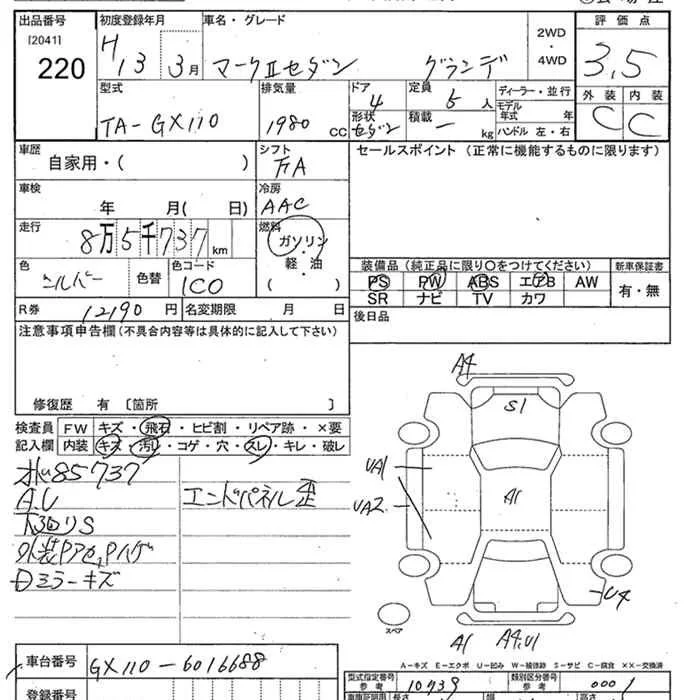 出品番号 初度登録年月 車名・グレード 2WD・4WD 評価点
[2041]
220 H13 3月 マークⅡセダン グランデ 3,5
型式 排気量 ドア 4 定員 5人 ディーラー・並行 外装 内装
TA-GX110 1980cc 形状 セダン 積載 ー kg モデル年式 年 C C
ハンドル 左・右
車歴 自家用・( ) シフト FA セールスポイント(正常に機能するものに限ります)
車検 年 月( 日) 冷房 AAC
走行 8万5千737km 燃料 ガソリン・軽・油( )
色 シルバー 色替 色コード 1C0
装備品(純正品に限り○をつけてください) 新車保証書
PS PW ABS エアB AW 有・無
SR ナビ TV カワ
R券 12190円 名変期限 月 日 後日品
注意事項申告欄(不具合内容等は具体的に記入して下さい)
修復歴 有 〔箇所 〕
検査員 FW キズ・飛石・ヒビ割・リペア跡・×要
記入欄 内装 キズ・汚レ・コゲ・穴・スレ・キレ・破レ
85737
A.U エンドパネル歪
下回りS
外装Pアセ,Pハゲ
ミラーキズ
A4
S1
UA1
A1
UA2
U4
スペア
A1 A4.U1
A-キズ E-エクボ U-凹み W-補修跡 S-サビ C-腐食 ××-交換済
車台番号 GX110-6016688
型式指定番号 参考 10739 類別区分番号 参考 0001
登録番号